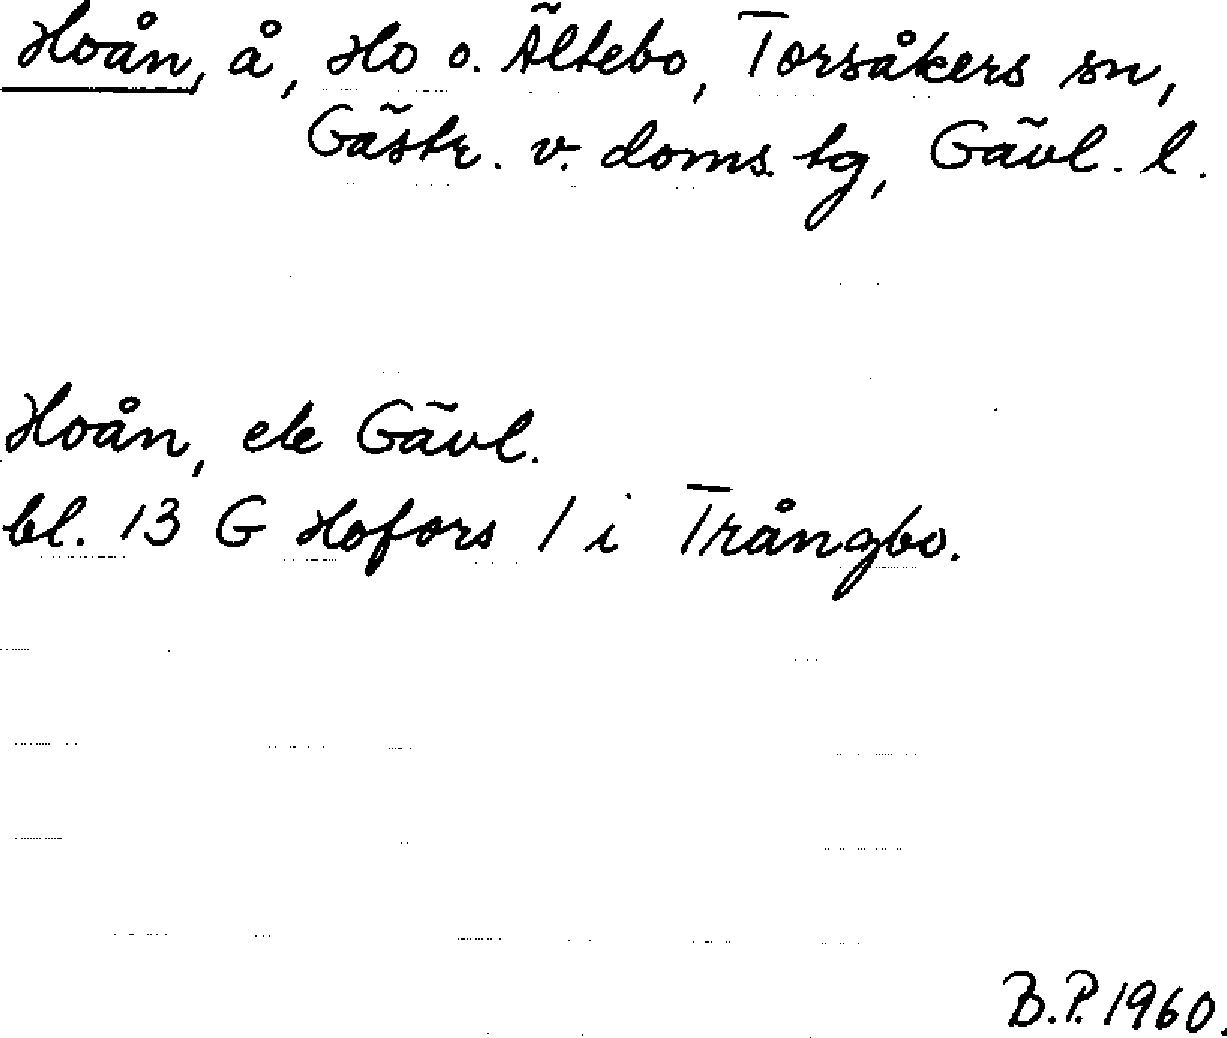 Hoån, å, Ho o. Ältebo, Torsåkers sn,
Gästr. v. doms. tg, Gävl. l.
Hoån, ek Gävl.
bl. 13 G Hofors / i Trångbo.
B.P. 1960.